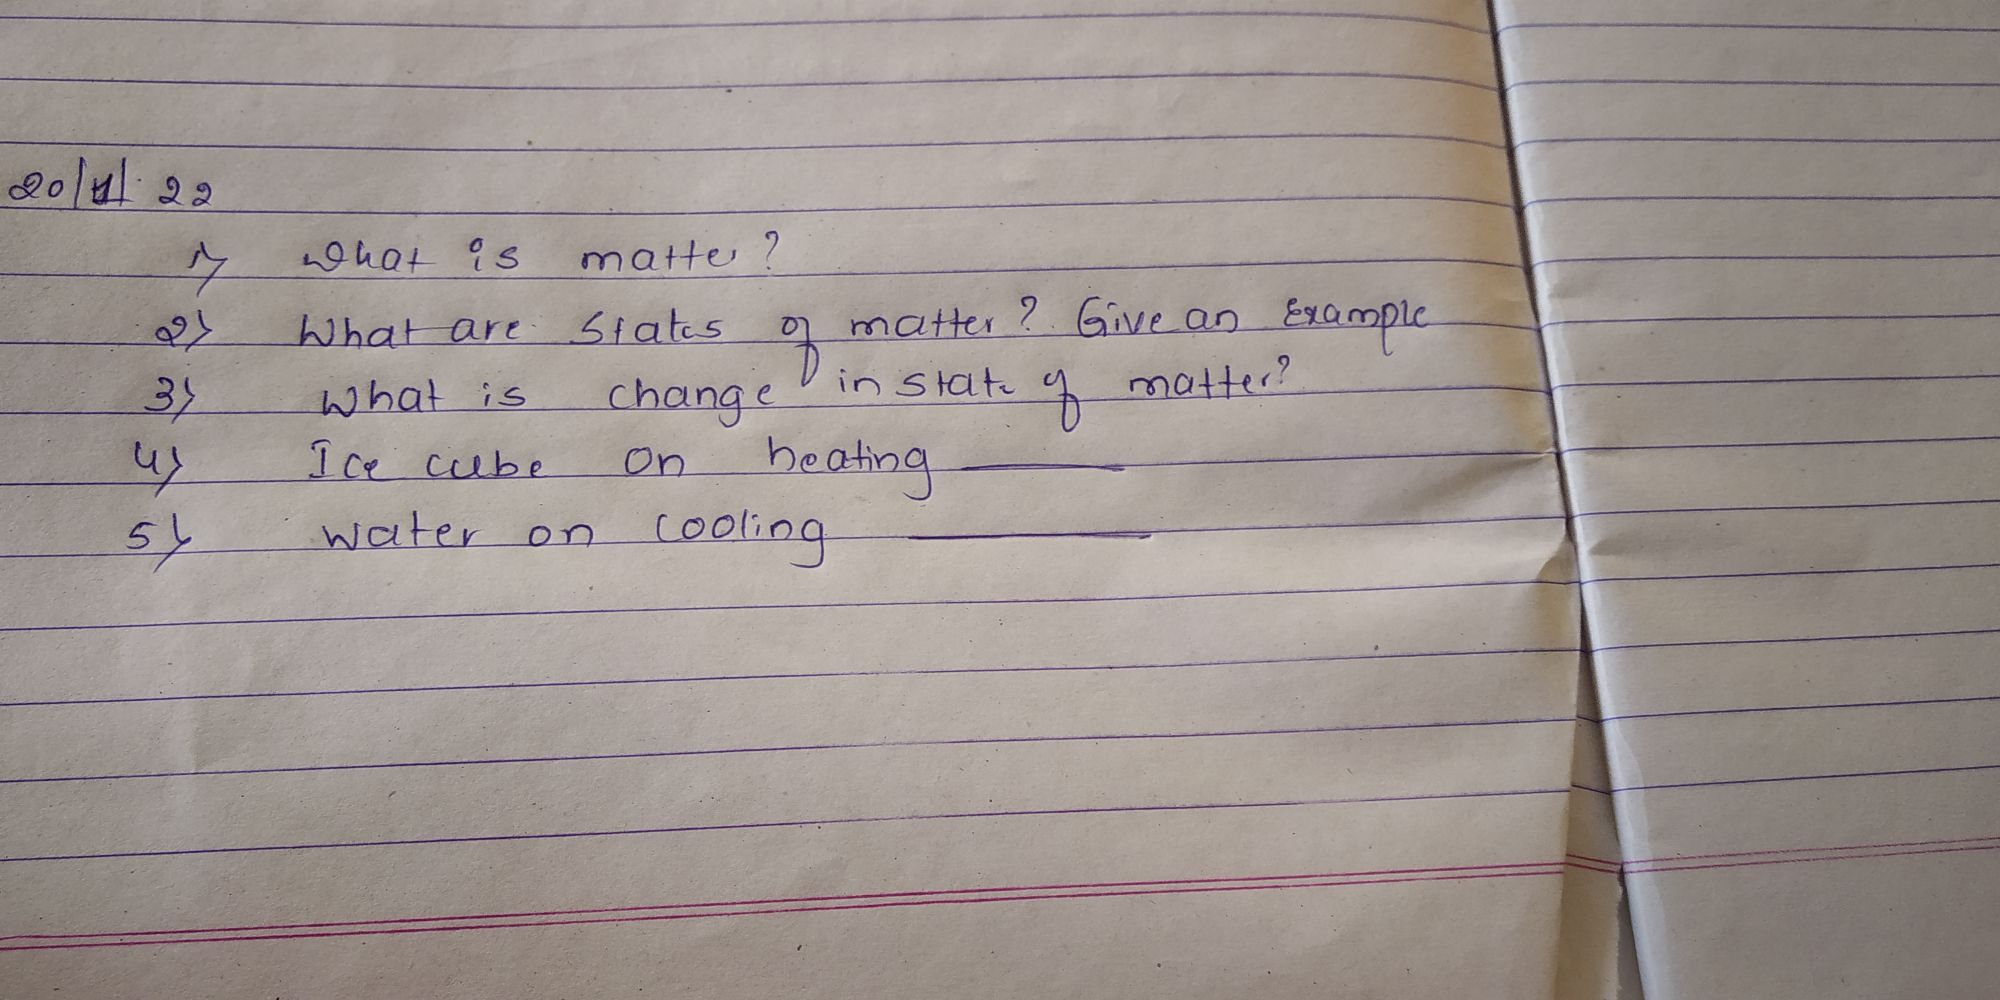 20/1/22
1) What is matter?
2) What are States of matter? Give an Example
3) What is change in state of matter?
4) Ice cube on heating ______
5) Water on cooling ______